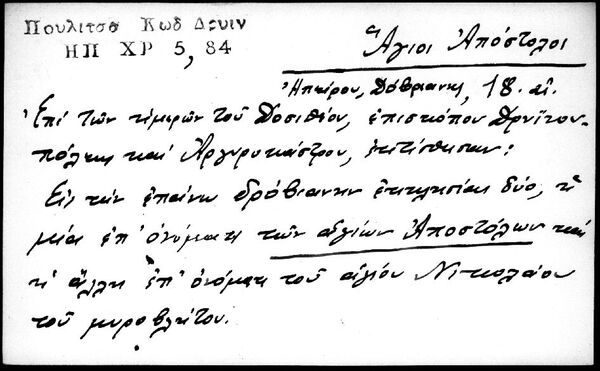 Πουλιτσα Κωδ Δρυιν
ΗΠ ΧΡ 5, 84
Ἅγιοι Ἀπόστολοι
Ἠπείρου, Δόβριανη, 18. αἰ.
Ἐπί τῶν ἡμερῶν τοῦ Δοσιθέου, ἐπισκόπου Δρυϊνου-
πόλεως καί Ἀργυροκάστρου, ἐκτίσθησαν:
Εἰς τήν ἐπάνω δρόβιανην ἐκκλησίαι δύο, ἡ
μία ἐπ' ὀνόματι τῶν ἁγίων Ἀποστόλων καί
ἡ ἄλλη ἐπ' ὀνόματι τοῦ ἁγίου Νικολάου
τοῦ μυροβλήτου.